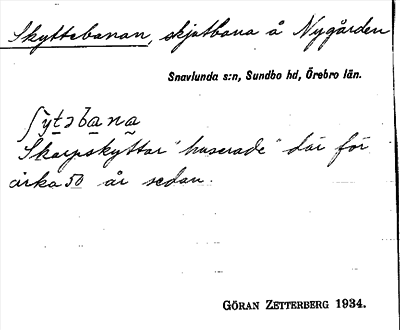 Skyttebanan, skjutbana å Nygården
Snavlunda s:n, Sundbo hd, Örebro län.
ʃytəbana
Skarpskyttar "huserade" där för
cirka 50 år sedan.
GÖRAN ZETTERBERG 1934.